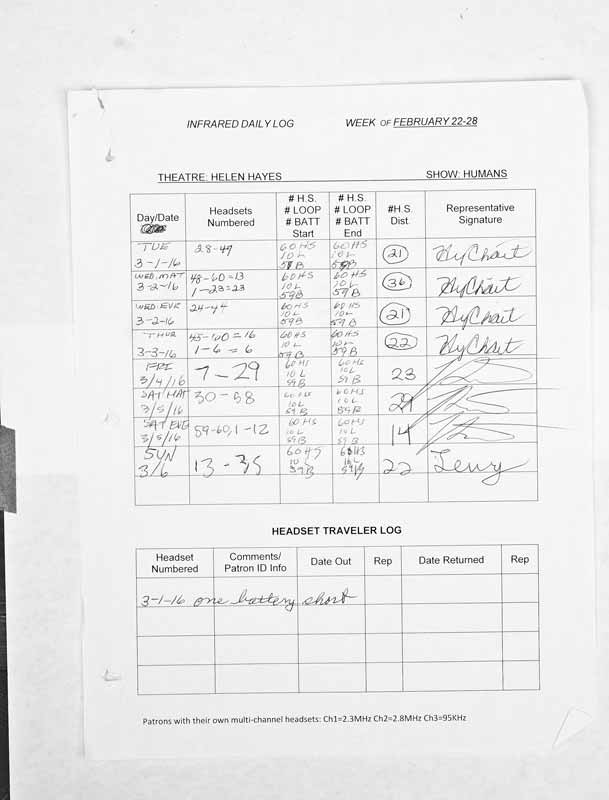 INFRARED DAILY LOG WEEK OF FEBRUARY 22-28
THEATRE: HELEN HAYES SHOW: HUMANS
Day/Date Headsets Numbered # H.S. # LOOP # BATT Start # H.S. # LOOP # BATT End #H.S. Dist. Representative Signature
TUE 3-1-16 28-49 60HS 10L 60HS 10L 59B 21 HyChart
WED. MAT 3-2-16 48-60=13 1-23=23 60HS 10L 59B 60HS 10L 59B 36 HyChart
WED. EVE 3-2-16 24-44 60HS 10L 59B 60HS 10L 59B 21 HyChart
THUR 3-3-16 45-60=16 1-6=6 60HS 10L 59B 60HS 10L 59B 22 HyChart
FRI 3/4/16 7-29 60HS 10L 59B 60HS 10L 59B 23
SAT MAT 3/5/16 30-58 60HS 10L 59B 60HS 10L 29
SAT EVE 3/5/16 59-60,1-12 60HS 10L 59B 60HS 10L 59B 14
SUN 3/6 13-35 60HS 10L 60HS 10L 22
HEADSET TRAVELER LOG
Headset Numbered Comments/ Patron ID Info Date Out Rep Date Returned Rep
3-1-16 one battery short
Patrons with their own multi-channel headsets: Ch1=2.3MHz Ch2=2.8MHz Ch3=95KHz